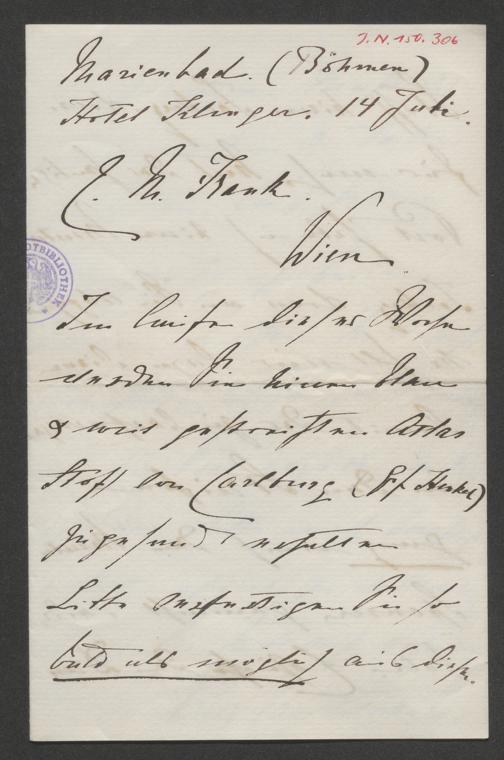 J.N. 150.306
Marienbad. (Böhmen)
Hotel Klinger. 14 Juli.
E. M. Frank.
Wien
Im laufe dieser Woche
werden Sie einen blau
& weis gestreiften Atlas
Stoff von Carlburg (Gf Henkel)
zugesandt erhalten
Bitte verfertigen Sie so
bald als möglich aus diesem
STADTBIBLIOTHEK